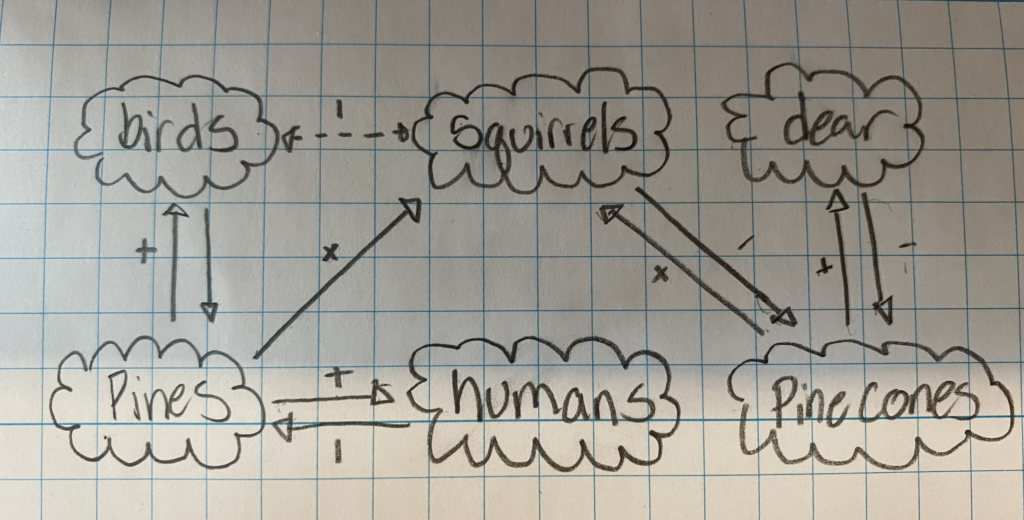 birds
squirrels
dear
Pines
humans
Pinecones
+
+
-
-
+
-
+
+
-